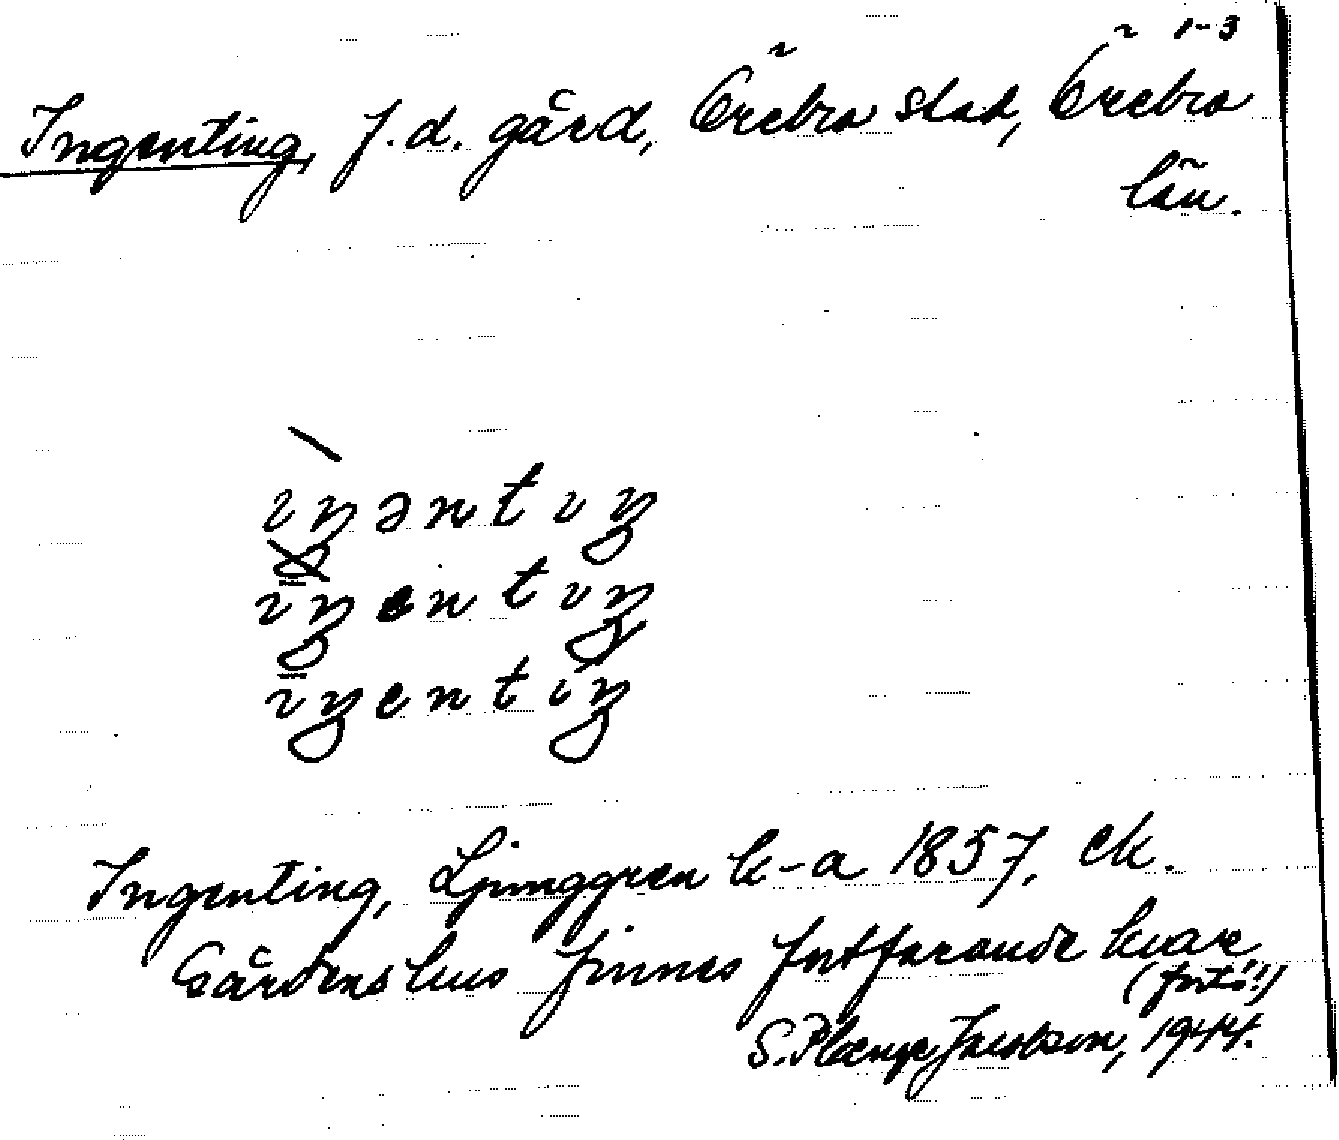 1-3
Ingenting, f.d. gård, Örebro stad, Örebro
län.
ıŋəntıŋ
ıŋentıŋ
ıŋentıŋ
Ingenting, Ljunggren k-a 1857, ek.
Gårdens hus finnes fortfarande kvar
(forts!)
S. Plænge Jacobson, 1944.